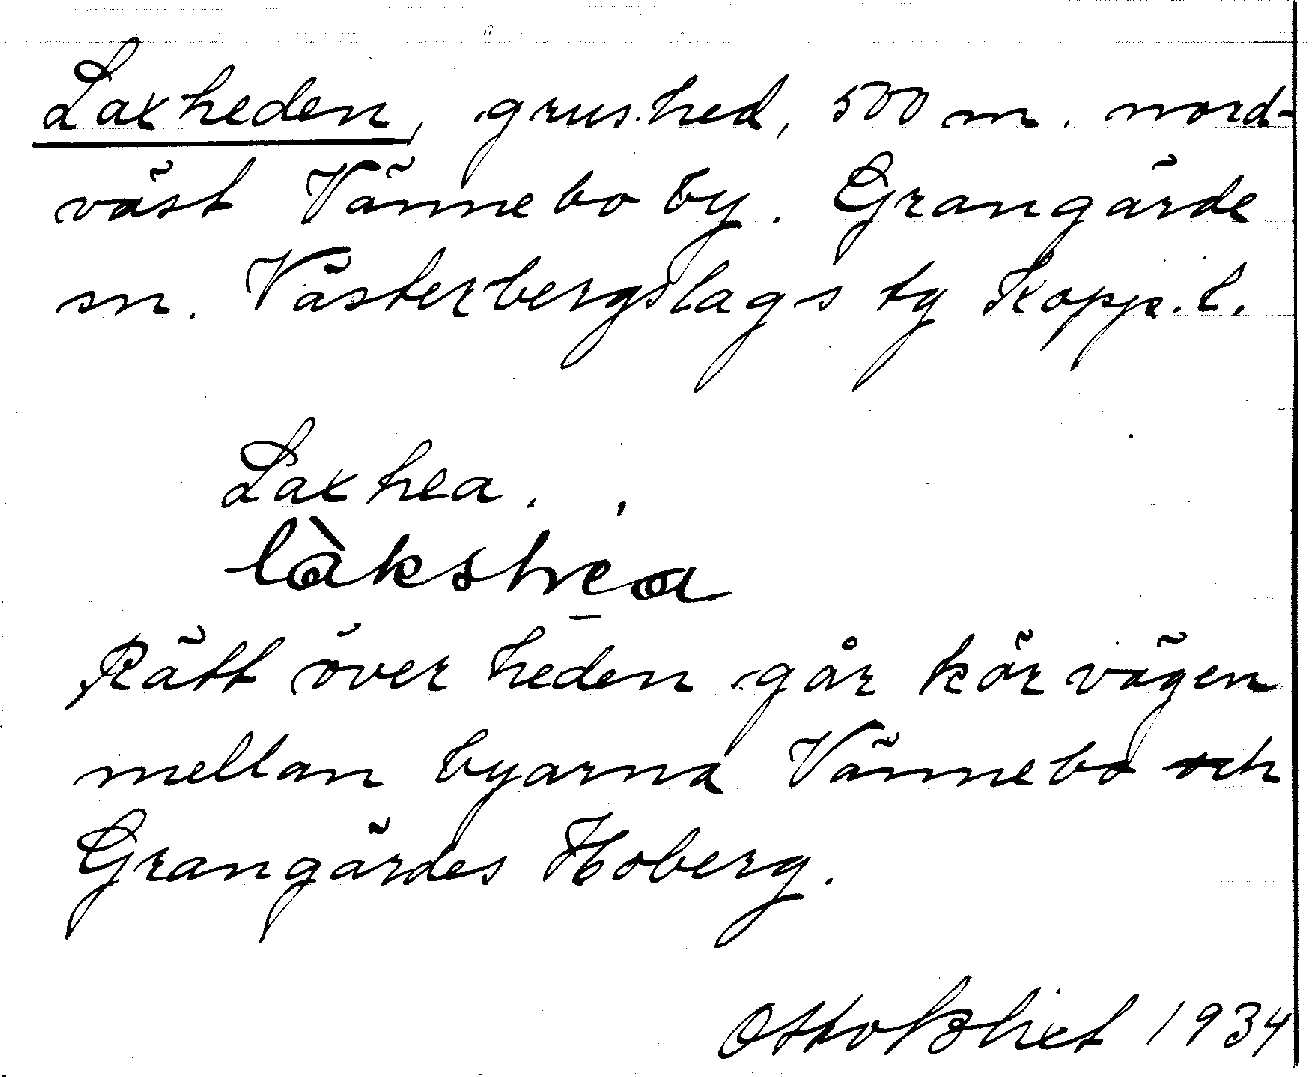 Laxheden, grushed, 500 m. nord-
väst Vännebo by. Grangärde
sn. Västerbergslags tg Kopp.l.
Laxhea.
làkshẹa
Rätt över heden går körvägen
mellan byarna Vännebo och
Grangärdes Hoberg.
Otto Blixt 1934